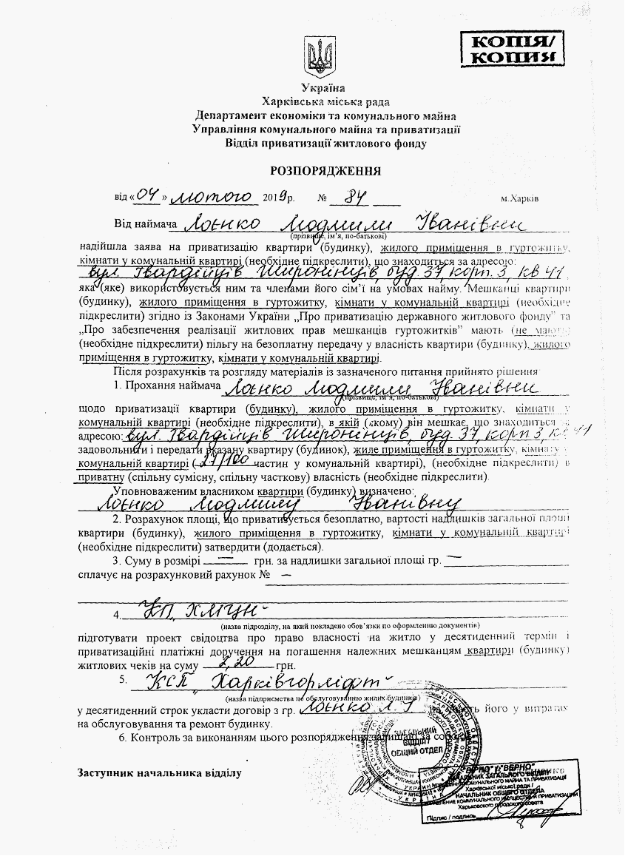 КОПІЯ/
КОПИЯ
Україна
Харківська міська рада
Департамент економіки та комунального майна
Управління комунального майна та приватизації
Відділ приватизації житлового фонду
РОЗПОРЯДЖЕННЯ
від «04» лютого 2019р. № 84 м.Харків
Від наймача Лоєнко Людмили Іванівни
(прізвище, ім’я, по-батькові)
надійшла заява на приватизацію квартири (будинку), жилого приміщення в гуртожитку,
кімнати у комунальній квартирі (необхідне підкреслити), що знаходиться за адресою:
вул. Гвардійців Широнінців буд 37, корп. 3, кв 41,
яка (яке) використовується ним та членами його сім’ї на умовах найму. Мешканці квартири
(будинку), жилого приміщення в гуртожитку, кімнати у комунальній квартирі (необхідне
підкреслити) згідно із Законами України „Про приватизацію державного житлового фонду” та
„Про забезпечення реалізації житлових прав мешканців гуртожитків” мають (не мають)
(необхідне підкреслити) пільгу на безоплатну передачу у власність квартири (будинку), жилого
приміщення в гуртожитку, кімнати у комунальній квартирі.
Після розрахунків та розгляду матеріалів із зазначеного питання прийнято рішення
1. Прохання наймача Лоєнко Людмили Іванівни
(прізвище, ім’я, по-батькові)
щодо приватизації квартири (будинку), жилого приміщення в гуртожитку, кімнати у
комунальній квартирі (необхідне підкреслити), в якій (якому) він мешкає, що знаходиться за
адресою: вул Гвардійців Широнінців, буд 37, корп 3, кв 41
задовольнити і передати вказану квартиру (будинок), жиле приміщення в гуртожитку, кімнату у
комунальній квартирі ( /100 частин у комунальній квартирі), (необхідне підкреслити) в
приватну (спільну сумісну, спільну часткову) власність (необхідне підкреслити).
Уповноваженим власником квартири (будинку) визначено:
Лоєнко Людмилу Іванівну
2. Розрахунок площі, що приватизується безоплатно, вартості надлишків загальної площі
квартири (будинку), жилого приміщення в гуртожитку, кімнати у комунальній квартирі
(необхідне підкреслити) затвердити (додається).
3. Суму в розмірі — грн. за надлишки загальної площі гр. —
сплачує на розрахунковий рахунок № —
4. КП „ХМЦУН”
(назва підрозділу, на який покладено обов’язки по оформленню документів)
підготувати проект свідоцтва про право власності на житло у десятиденний термін і
приватизаційні платіжні доручення на погашення належних мешканцям квартири (будинку)
житлових чеків на суму 8,20 грн.
5. КСП „Харківгорліфт”
(назва підприємства по обслуговуванню жилих будинків)
у десятиденний строк укласти договір з гр. Лоєнко Л. І. його у витратах
на обслуговування та ремонт будинку.
6. Контроль за виконанням цього розпорядження залишаю за собою.
Заступник начальника відділу
ЗАГАЛЬНИЙ
ВІДДІЛ
ОБЩИЙ ОТДЕЛ
"ВІРНО"/"ВЕРНО"
НАЧАЛЬНИК ЗАГАЛЬНОГО ВІДДІЛУ
Харківської міської ради /
НАЧАЛЬНИК ОБЩЕГО ОТДЕЛА
Харьковского городского совета
Підпис / подпись